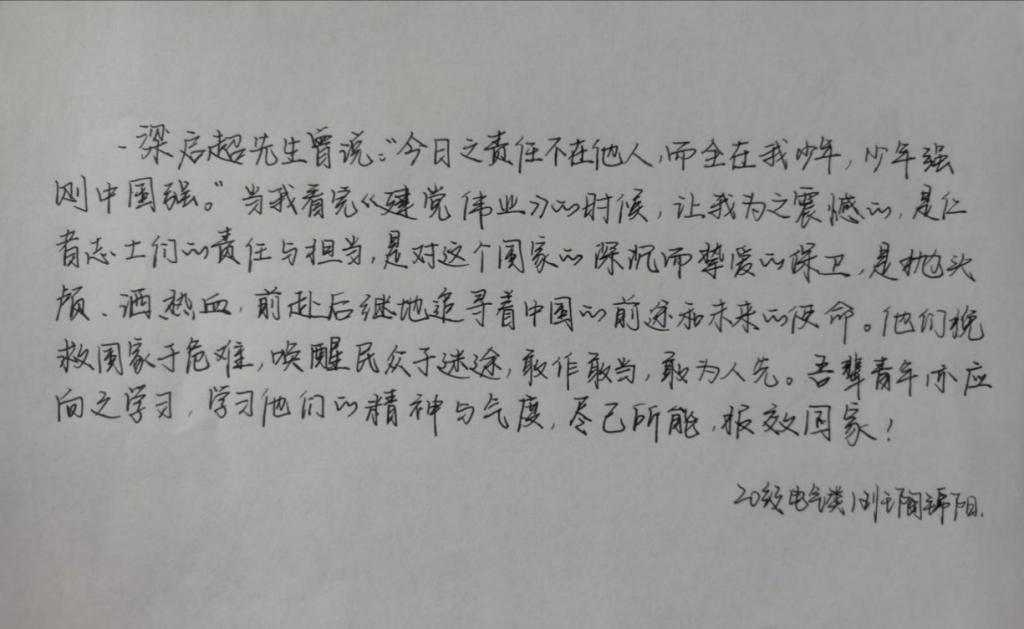 梁启超先生曾说:“今日之责任不在他人,而全在我少年,少年强
则中国强。”当我看完《建党伟业》的时候,让我为之震撼的,是仁
者志士们的责任与担当,是对这个国家的深沉而挚爱的保卫,是抛头
颅、洒热血,前赴后继地追寻着中国的前途和未来的使命。他们挽
救国家于危难,唤醒民众于迷途,敢作敢当,敢为人先。吾辈青年亦应
向之学习,学习他们的精神与气度,尽己所能,报效国家!
20级电气类1班